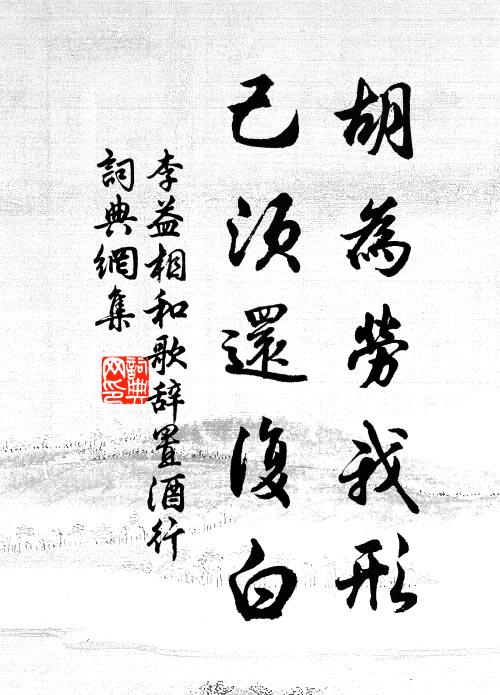 胡為勞我形
己須還復白
李益相和歌辞置酒行
詞典網集
詞典網印